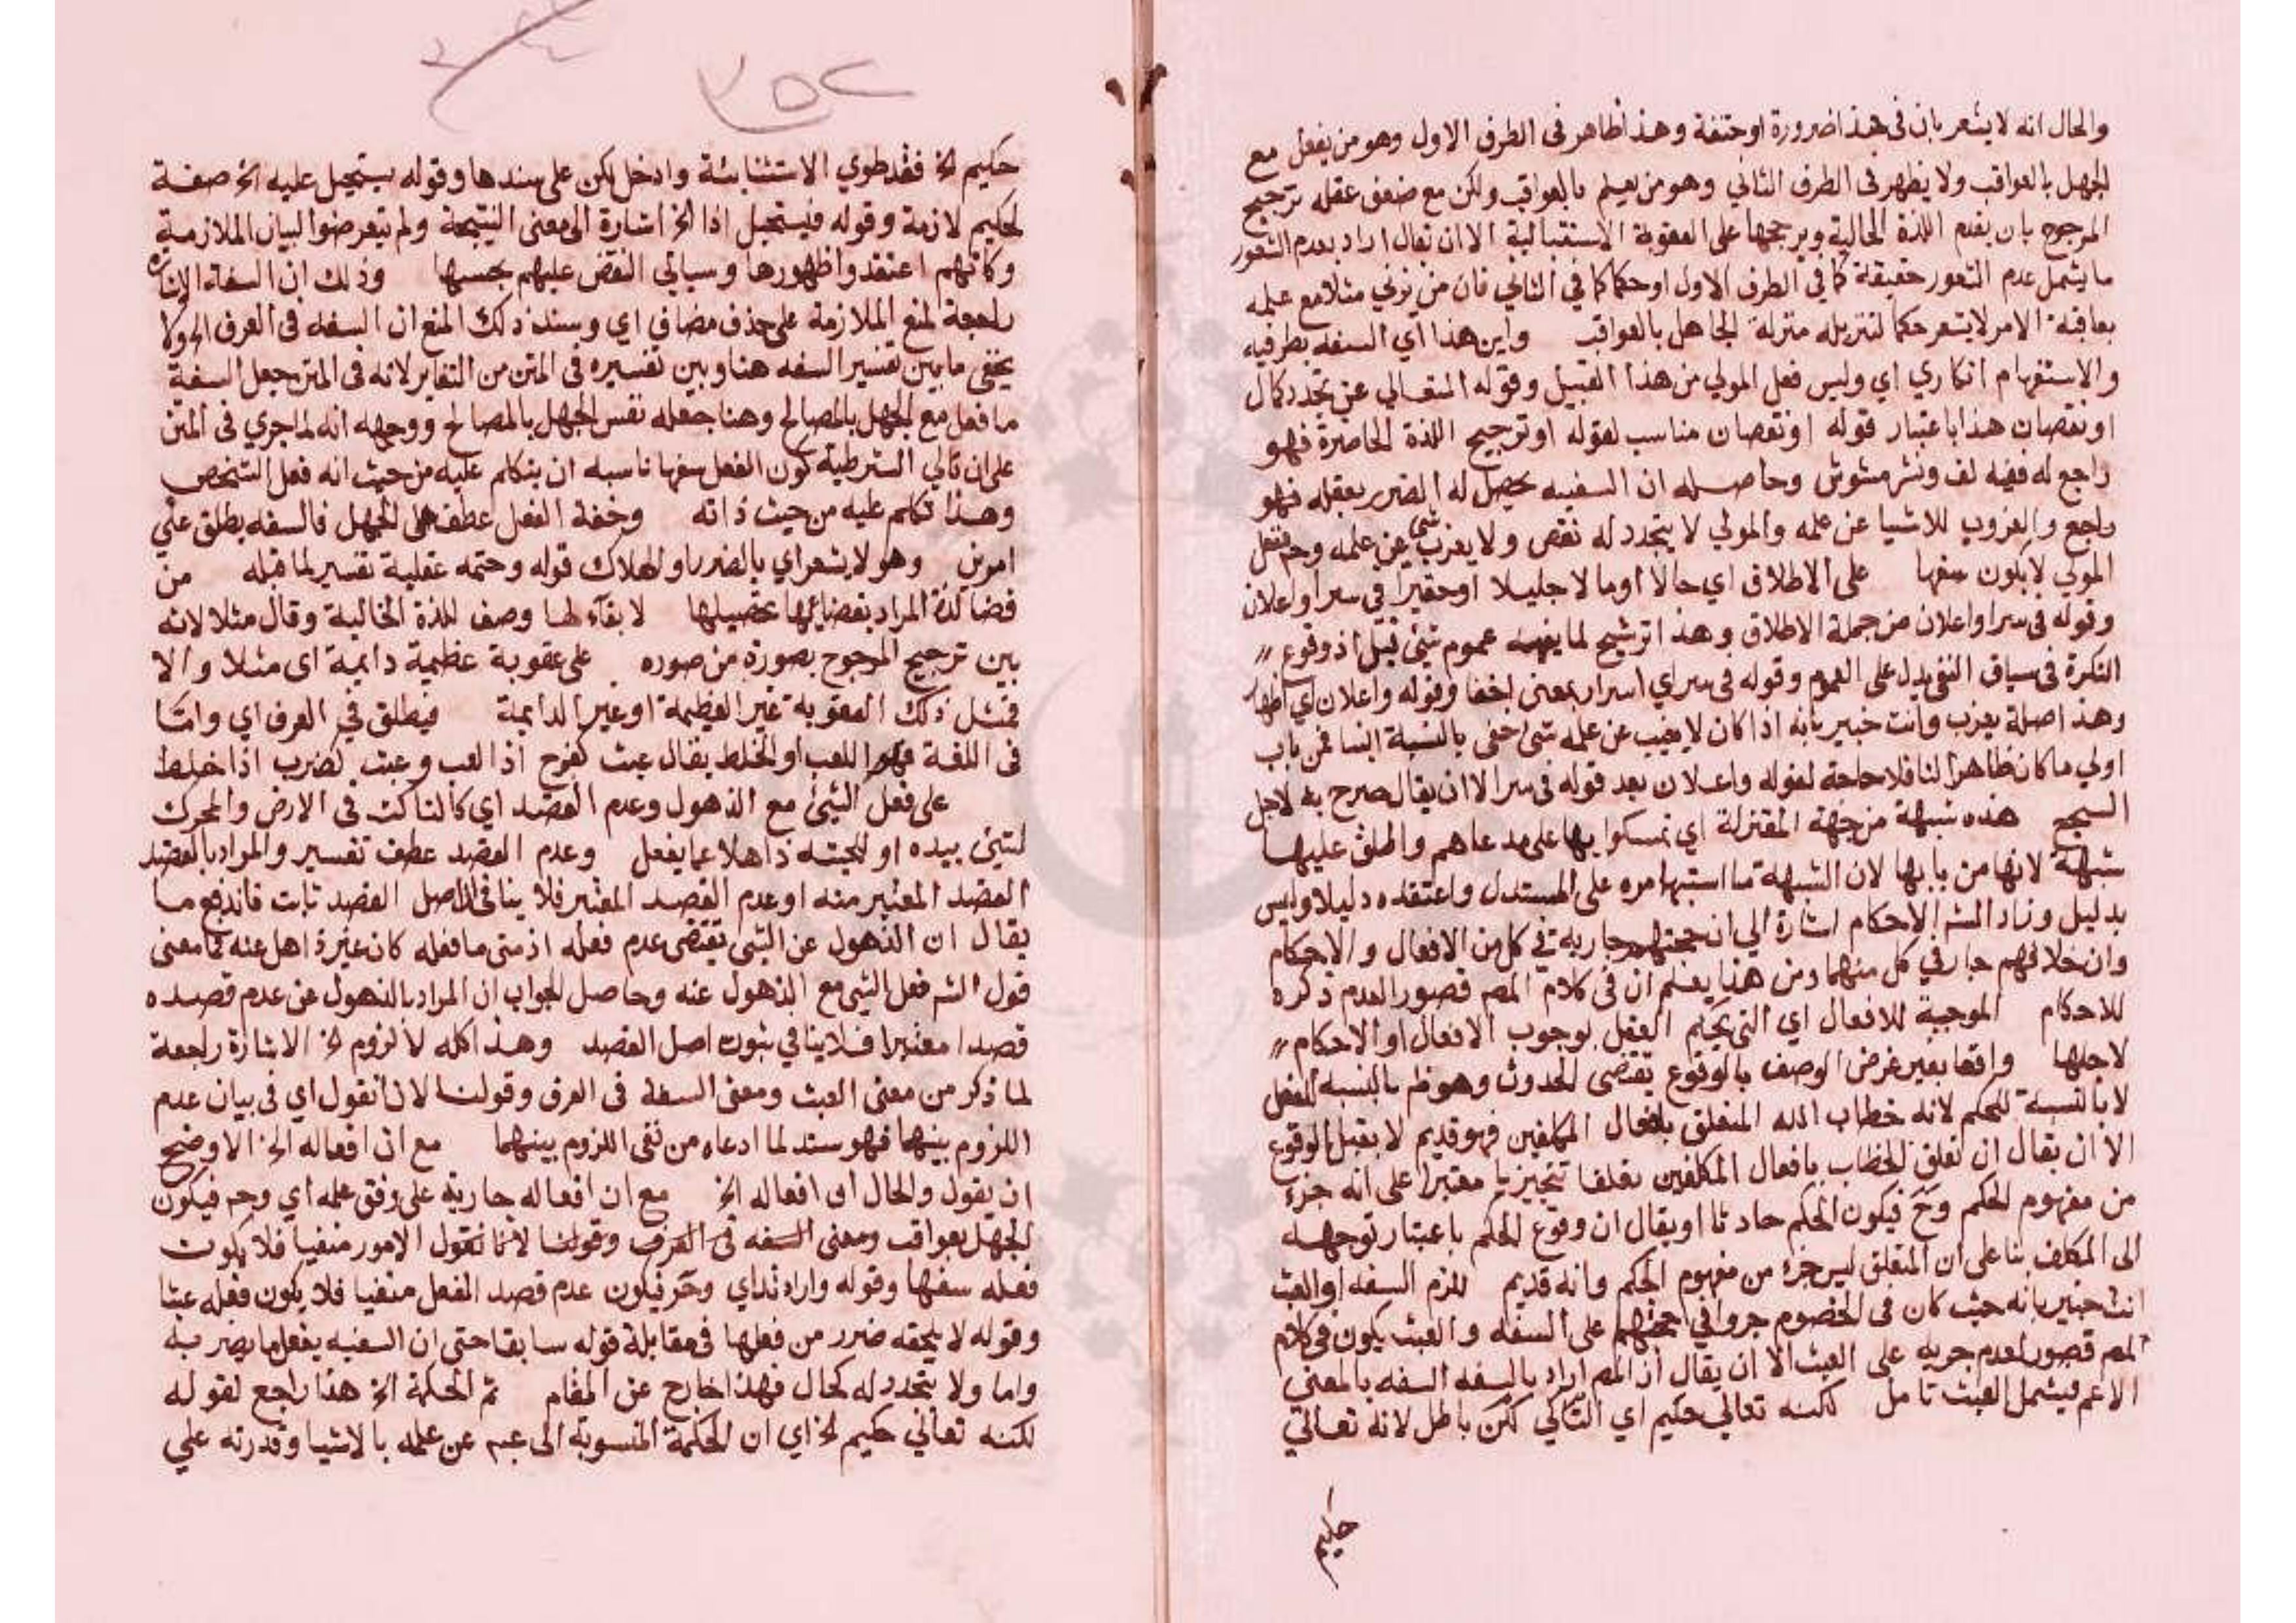 والحال انه لا يشعر بان فى هذا ضرورة او حتفة وهذا ظاهر فى الطرف الاول وهو من يفعل مع
الجهل بالعواقب ولا يظهر فى الطرف الثانى وهو من يعلم بالعواقب ولكن مع ضعف عقله ترجيح
المرجوح بان يقدم اللذة الحالية ويرجحها على العقوبة الاستقبالية الا ان يقال اراد بعدم الشعور
ما يشمل عدم الشعور حقيقة كما فى الطرف الاول او حكما كما في الثاني فان من يزني مثلا مع علمه
بعاقبة الامر لا يشعر حكما لتنزيله منزلة الجاهل بالعواقب واين هذا اي السفه بطرفيه
والاستفهام انكاري اي وليس فعل المولي من هذا القبيل وقوله المتعالي عن تجدد كمال
او نقصان هذا باعتبار قوله او نقصان مناسب لقوله او ترجيح اللذة الحاضرة فهو
راجع له ففيه لف ونشر مشوش وحاصله ان السفيه يحصل له الضرر بعقله فهو
راجع والعزوب للاشيا عن علمه والمولي لا يتجدد له نقص ولا يعزب شي عن علمه وحـ ففعل
المولي لا يكون سفها على الاطلاق اي حالا او مالا جليلا او حقيرا في سر او اعلان
وقوله فى سر او اعلان من جملة الاطلاق وهذا ترشيح لما يفيده عموم شئ قبل اذ وقوع
النكرة فى سياق النفي يدل على العموم وقوله فى سر اي اسرار بمعنى اخفا وقوله واعلان اي اظهار
وهذا صلة يعزب وانت خبير بانه اذا كان لا يغيب عن علمه شئ خفى بالنسبة الينا فمن باب
اولي ما كان ظاهرا لنا فلا حاجة لقوله واعلان بعد قوله فى سر الا ان يقال صرح به لاجل
السجع هذه شبهة من جهة المعتزلة اي تمسكوا بها على مدعاهم واطلق عليها
شبهة لانها من بابها لان الشبهة ما اشتبه امره على المستدل واعتقده دليلا وليس
بدليل وزاد الشـ الاحكام اشارة الي ان حجتهم جارية في كل من الافعال والاحكام
وان خلافهم جار في كل منهما ومن هذا يعلم ان فى كلام المصـ قصور العدم ذكره
للاحكام الموجبة للافعال اي التي يحكم العقل بوجوب الافعال او الاحكام
لاجلها واقعا بغير غرض الوصف بالوقوع يقتضى الحدوث وهو ظـ بالنسبة للفعل
لا بالنسبة للحكم لانه خطاب الله المتعلق بافعال المكلفين فهو قديم لا يقبل الوقوع
الا ان يقال ان تعلق الخطاب بافعال المكلفين تعلقا تنجيزيا معتبرا على انه جزء
من مفهوم الحكم وحـ فيكون الحكم حادثا او يقال ان وقوع الحكم باعتبار توجهه
الى المكلف بنا على ان المتعلق ليس جزء من مفهوم الحكم وانه قديم للزم السفه او العبث
انت خبير بانه حيث كان فى الخصوم جروا في حجتهم على السفه والعبث يكون فى كلام
المصـ قصور لعدم جريه على العبث الا ان يقال ان المصـ اراد بالسفه السفه بالمعنى
الاعم فيشمل العبث تامل لكنه تعالى حكيم اي التالي لكن باطل لانه تعالى
حكيم
٣٥٢
حكيم الخ فقد طوي الاستثنائية وادخل لكن على سندها وقوله يستحيل عليه الخ صفة
لحكيم لازمة وقوله فيستحيل اذا الخ اشارة الى معنى النتيجة ولم يتعرضوا لبيان الملازمة
وكانهم اعتقدوا ظهورها وسياتي النقض عليهم بحسبها وذلك ان السفه الاشارة
راجعة لمنع الملازمة على حذف مضاف اي وسند ذلك المنع ان السفه فى العرف الخ ولا
يخفى ما بين تفسير السفه هنا وبين تفسيره فى المتن من التغاير لانه فى المتن جعل السفه
ما فعل مع الجهل بالمصالح وهنا جعله نفس الجهل بالمصالح ووجهه انه لما جري فى المتن
على ان تالي الشرطية كون الفعل سفها ناسبه ان يتكلم عليه من حيث انه فعل الشخص
وهنا تكلم عليه من حيث ذاته وخفة الفعل عطف على الجهل فالسفه يطلق على
امرين وهو لا يشعر اي بالضرر او الهلاك قوله وحتمه عقلية تفسير لما قبله من
قضا لذة المراد بقضائها تحصيلها لا بقاء لها وصف للذة الحالية وقال مثلا لانه
بين ترجيح المرجوح بصورة من صوره على عقوبة عظيمة دايمة اى مثلا والا
فمثل ذلك العقوبة غير العظيمة او غير الدايمة فيطلق في العرف اي واما
فى اللغة فهو اللعب او الخلط يقال عبث كفرح اذا لعب وعبث كضرب اذا خلط
على فعل الشئ مع الذهول وعدم القصد اي كالناكت فى الارض والمحرك
لشئ بيده او لحيته ذاهلا عما يفعل وعدم القصد عطف تفسير والمراد بالقصد
القصد المعتبر منه او عدم القصد المعتبر فلا ينافى ان اصل القصد ثابت فاندفع ما
يقال ان الذهول عن الشئ يقتضى عدم فعله اذ متى ما فعله كان غير ذاهل عنه فما معنى
قول الشـ فعل الشئ مع الذهول عنه وحاصل الجواب ان المراد بالذهول عن عدم قصده
قصدا معتبرا فلا ينافي ثبوت اصل القصد وهذا كله لا لزوم الخ الاشارة راجعة
لما ذكر من معنى العبث ومعنى السفه فى العرف وقولنا لانا نقول اي فى بيان عدم
اللزوم بينهما فهو سند لما ادعاه من نفى اللزوم بينهما مع ان افعاله الخ الاوضح
ان يقول والحال ان افعاله الخ مع ان افعاله جارية على وفق علمه اي وحـ فيكون
الجهل بعواقب ومعنى السفه فى العرف وقولنا لانا نقول الامور منفيا فلا يكون
فعله سفها وقوله وارادته اي وحـ فيكون عدم قصد الفعل منفيا فلا يكون فعله عبثا
وقوله لا يلحقه ضرر من فعلها فى مقابلة قوله سابقا حتى ان السفيه يفعل ما يضر به
واما ولا يتجدد له كمال فهذا خارج عن المقام ثم الحكمة الخ هذا راجع لقوله
لكنه تعالى حكيم الخ اي ان الحكمة المنسوبة الى عبـ عن علمه بالاشيا وقدرته على